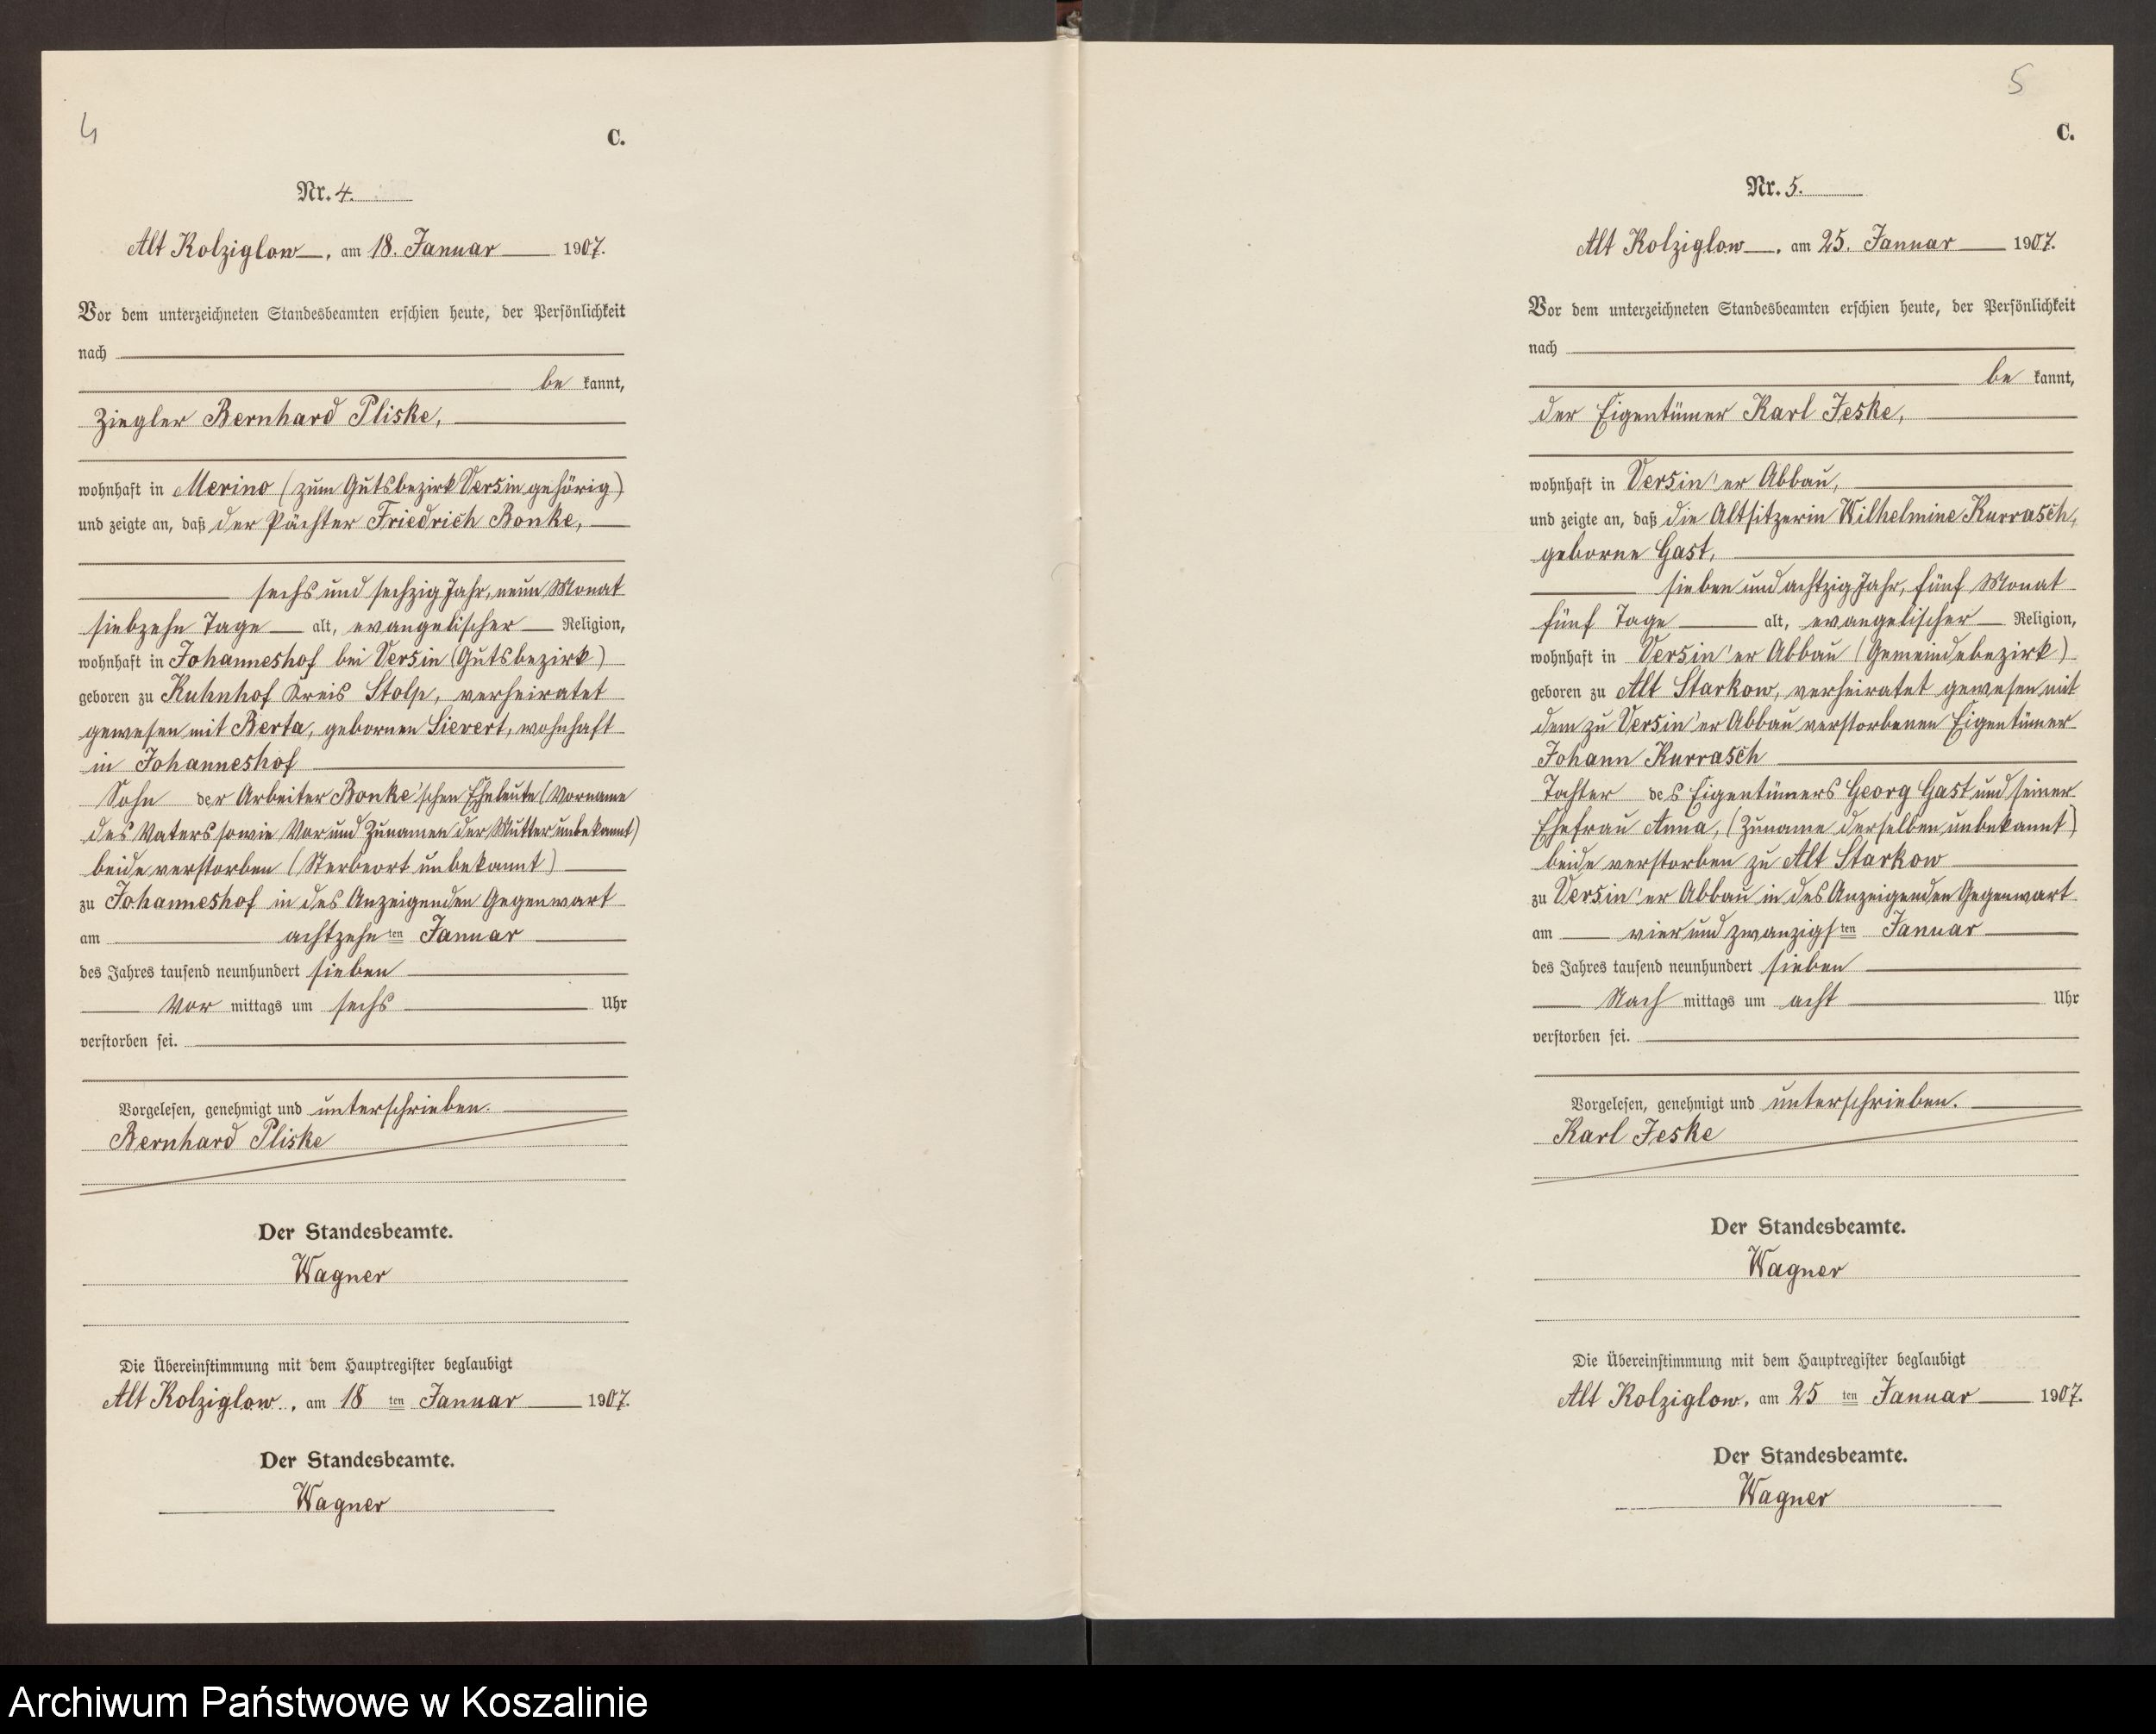 4
C.
Nr. 4.
Alt Kolziglow, am 18. Januar 1907.
Vor dem unterzeichneten Standesbeamten erschien heute, der Persönlichkeit
nach
be kannt,
Ziegler Bernhard Pliske,
wohnhaft in Merino (zum Gutsbezirk Versin gehörig)
und zeigte an, daß der Pächter Friedrich Bonke,
sechs und sechzig Jahr, neun Monat
siebzehn Tage alt, evangelischer Religion,
wohnhaft in Johanneshof bei Versin (Gutsbezirk)
geboren zu Kuhnhof Kreis Stolp, verheiratet
gewesen mit Berta, gebornen Sievert, wohnhaft
in Johanneshof
Sohn der Arbeiter Bonke'schen Eheleute (Vorname
des Vaters sowie Vor und Zunamen der Mutter unbekannt)
beide verstorben (Sterbeort unbekannt)
zu Johanneshof in des Anzeigenden Gegenwart
am achtzehnten Januar
des Jahres tausend neunhundert sieben
Vor mittags um sechs Uhr
verstorben sei.
Vorgelesen, genehmigt und unterschrieben.
Bernhard Pliske
Der Standesbeamte.
Wagner
Die Übereinstimmung mit dem Hauptregister beglaubigt
Alt Kolziglow, am 18 ten Januar 1907.
Der Standesbeamte.
Wagner
5
C.
Nr. 5.
Alt Kolziglow, am 25. Januar 1907.
Vor dem unterzeichneten Standesbeamten erschien heute, der Persönlichkeit
nach
be kannt,
der Eigentümer Karl Jeske,
wohnhaft in Versin'er Abbau,
und zeigte an, daß die Altsitzerin Wilhelmine Kurrasch,
geborne Gast,
sieben und achtzig Jahr, fünf Monat
fünf Tage alt, evangelischer Religion,
wohnhaft in Versin'er Abbau (Gemeindebezirk)
geboren zu Alt Starkow, verheiratet gewesen mit
dem zu Versin'er Abbau verstorbenen Eigentümer
Johann Kurrasch
Tochter des Eigentümers Georg Gast und seiner
Ehefrau Anna, (Zuname derselben unbekannt)
beide verstorben zu Alt Starkow
zu Versin'er Abbau in des Anzeigenden Gegenwart
am vier und zwanzigsten Januar
des Jahres tausend neunhundert sieben
Nach mittags um acht Uhr
verstorben sei.
Vorgelesen, genehmigt und unterschrieben.
Karl Jeske
Der Standesbeamte.
Wagner
Die Übereinstimmung mit dem Hauptregister beglaubigt
Alt Kolziglow, am 25 ten Januar 1907.
Der Standesbeamte.
Wagner
Archiwum Państwowe w Koszalinie